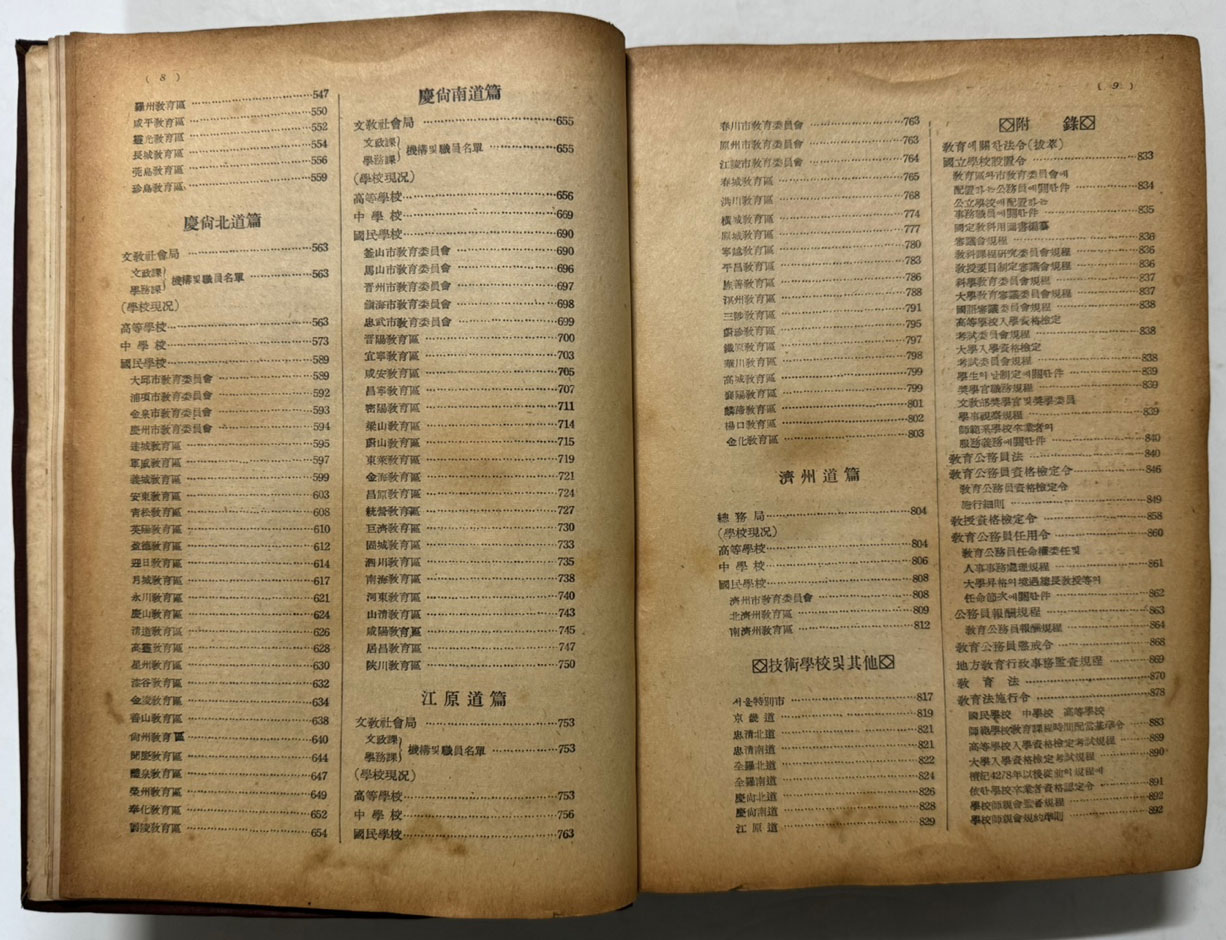 ( 8 )
羅州敎育區 547
咸平敎育區 550
靈光敎育區 552
長城敎育區 554
莞島敎育區 556
珍島敎育區 559
慶尙北道篇
文敎社會局 563
文政課
學務課 機構및職員名單 563
(學校現況)
高等學校 563
中學校 573
國民學校 589
大邱市敎育委員會 589
浦項市敎育委員會 592
金泉市敎育委員會 593
慶州市敎育委員會 594
達城敎育區 595
軍威敎育區 597
義城敎育區 599
安東敎育區 603
靑松敎育區 608
英陽敎育區 610
盈德敎育區 612
迎日敎育區 614
月城敎育區 617
永川敎育區 621
慶山敎育區 624
淸道敎育區 626
高靈敎育區 628
星州敎育區 630
漆谷敎育區 632
金陵敎育區 634
善山敎育區 638
尙州敎育區 640
聞慶敎育區 644
醴泉敎育區 647
榮州敎育區 649
奉化敎育區 652
鬱陵敎育區 654
慶尙南道篇
文敎社會局 655
文政課
學務課 機構및職員名單 655
(學校現況)
高等學校 656
中學校 669
國民學校 690
釜山市敎育委員會 690
馬山市敎育委員會 696
晋州市敎育委員會 697
鎭海市敎育委員會 698
忠武市敎育委員會 699
晋陽敎育區 700
宜寧敎育區 703
咸安敎育區 705
昌寧敎育區 707
密陽敎育區 711
梁山敎育區 714
蔚山敎育區 715
東萊敎育區 719
金海敎育區 721
昌原敎育區 724
統營敎育區 727
巨濟敎育區 730
固城敎育區 733
泗川敎育區 735
南海敎育區 738
河東敎育區 740
山淸敎育區 743
咸陽敎育區 745
居昌敎育區 747
陜川敎育區 750
江原道篇
文敎社會局 753
文政課
學務課 機構및職員名單 753
(學校現況)
高等學校 753
中學校 756
國民學校 763
( 9 )
春川市敎育委員會 763
原州市敎育委員會 763
江陵市敎育委員會 764
春城敎育區 765
洪川敎育區 768
橫城敎育區 774
原城敎育區 777
寧越敎育區 780
平昌敎育區 783
旌善敎育區 786
溟州敎育區 788
三陟敎育區 791
蔚珍敎育區 795
鐵原敎育區 797
華川敎育區 798
高城敎育區 799
襄陽敎育區 799
麟蹄敎育區 801
楊口敎育區 802
金化敎育區 803
濟州道篇
總務局 804
(學校現況)
高等學校 804
中學校 806
國民學校 808
濟州市敎育委員會 808
北濟州敎育區 809
南濟州敎育區 812
技術學校및其他
서울特別市 817
京畿道 819
忠淸北道 821
忠淸南道 821
全羅北道 822
全羅南道 824
慶尙北道 826
慶尙南道 828
江原道 829
附錄
敎育에關한法令(拔萃)
國立學校設置令 833
敎育區와市敎育委員會에
配置하는公務員에關한件 834
公立學校에配置하는
事務職員에關한件 835
國定敎科用圖書編纂
審議會規程 836
敎科課程硏究委員會規程 836
敎授要目制定審議會規程 836
科學敎育委員會規程 837
大學敎育審議委員會規程 837
國語審議委員會規程 838
高等學校入學資格檢定
考試委員會規程 838
大學入學資格檢定
考試委員會規程 838
學生의날制定에關한件 839
奬學官職務規程 839
文敎部奬學官및奬學委員
學事視察規程 839
師範系學校卒業者의
服務義務에關한件 840
敎育公務員法 840
敎育公務員資格檢定令 846
敎育公務員資格檢定令
施行細則 849
敎授資格檢定令 858
敎育公務員任用令 860
敎育公務員任命權委任및
人事事務處理規程 861
大學昇格의境遇總長敎授等의
任命節次에關한件 862
公務員報酬規程 863
敎育公務員報酬規程 864
敎育公務員懲戒令 868
地方敎育行政事務監査規程 869
敎育法 870
敎育法施行令 878
國民學校 中學校 高等學校
師範學校敎育課程時間配當基準令 883
高等學校入學資格檢定考試規程 889
大學入學資格檢定考試規程 890
檀記4278年以後從前의規程에
依한學校卒業者資格認定令 891
學校師親會監督規程 892
學校師親會規約準則 892